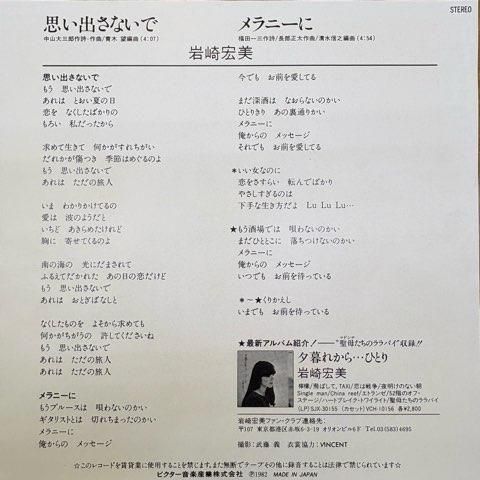 STEREO
思い出さないで
中山大三郎作詩・作曲/青木 望編曲(4:07)
メラニーに
福田一三作詩/長部正太作曲/清水信之編曲(4:54)
岩崎宏美
思い出さないで
もう 思い出さないで
あれは とおい夏の日
恋を なくしたばかりの
もろい 私だったから
求めて生きて 何かがすれちがい
だれかが傷つき 季節はめぐるのよ
もう 思い出さないで
あれは ただの旅人
いま わかりかけてるの
愛は 波のようだと
いちど あきらめたけれど
胸に 寄せてくるのよ
南の海の 光にだまされて
ふるえてだかれた あの日の恋だけど
もう 思い出さないで
あれは おとぎばなしと
なくしたものを よそから求めても
何かがちがうの 許してくださいね
もう 思い出さないで
あれは ただの旅人
あれは ただの旅人
メラニーに
もうブルースは 唄わないのかい
ギタリストとは 切れちまったのかい
メラニーに
俺からの メッセージ
今でも お前を愛してる
まだ深酒は なおらないのかい
ひとりきり あの裏通りかい
メラニーに
俺からの メッセージ
それでも お前を愛してる
*いい女なのに
恋をさすらい 転んでばかり
やさしすぎるのは
下手な生き方だよ Lu Lu Lu…
★もう酒場では 唄わないのかい
まだひとところに 落ちつけないのかい
メラニーに
俺からの メッセージ
いつでも お前を待っている
*〜★くりかえし
いまでも お前を待っている
★最新アルバム紹介!――"聖母たちのララバイ"収録!!
マドンナ
夕暮れから…ひとり
岩崎宏美
檸檬/飛ばして、TAXI/恋は戦争/夜明けのない朝
Single man/China reef/エトランゼ/52階のオフィ
ステージ/ハートブレイク・トワイライト/聖母たちのララバイ
(LP)SJX-30155 (カセット)VCH-10156 各¥2,800
岩崎宏美ファン・クラブ連絡先:
〒107 東京都港区赤坂6-3-19 オリオンビル6F Tel.03(583)4695
撮影:武藤 義 衣裳協力:VINCENT
☆このレコードを賃貸業に使用することを禁じます、また無断でテープその他に録音することは法律で禁じられています☆
ビクター音楽産業株式会社 Ⓟ1982 MADE IN JAPAN